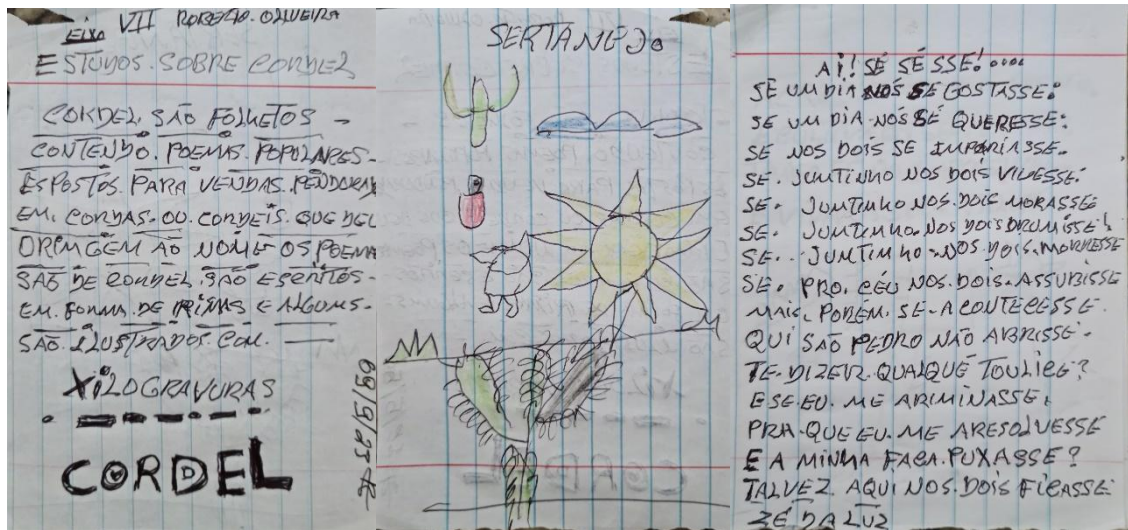 EIXO VII ROBERTO. OLIVEIRA
ESTUDOS. SOBRE CORDEL
CORDEL. SÃO FOLHETOS -
CONTENDO. POEMAS. POPULARES-
ESPOSTOS. PARA VENDAS.
EM. CORDAS-OU. CORDEIS. QUE DEU
ORIMGEM AO NOME OS POEMA
SÃO DE CORDEL. SÃO ESCRITOS-
EM. FORMA. DE RIMAS E ALGUMS-
SÃO. ILUSTRADOS. COM.
XILOGRAVURAS
CORDEL
SERTANEJO
AI! SE SÊSSE!....
SE UM DIA NÓS SE GOSTASSE:
SE UM DIA-NÓS SÉ QUERESSE:
SE NOS DOIS SE
SE. JUMTINHO NOS DOIS VIVESSE.
SE. JUMTINHO NOS. DOIS MORASSE
SE. JUMTINHO. NOS DOIS DRUMISSE!
SE. . JUMTINHO. NOS DOIS. MORRESSE
SE. PRO. CÉU NOS. DOIS. ASSUBISSE
MAIS. PORÉM. SE-ACONTECESSE.
QUI SÃO PEDRO NÃO ABRISSE-
TE. DIZER. QUALQUÉ TOULICE?
E SE EU. ME ARIMINASSE.
PRA-QUE EU. ME ARESOLVESSE
E A MINHA FACA. PUXASSE?
TALVEZ. AQUI NOS. DOIS FICASSE
ZÉ DA LUZ